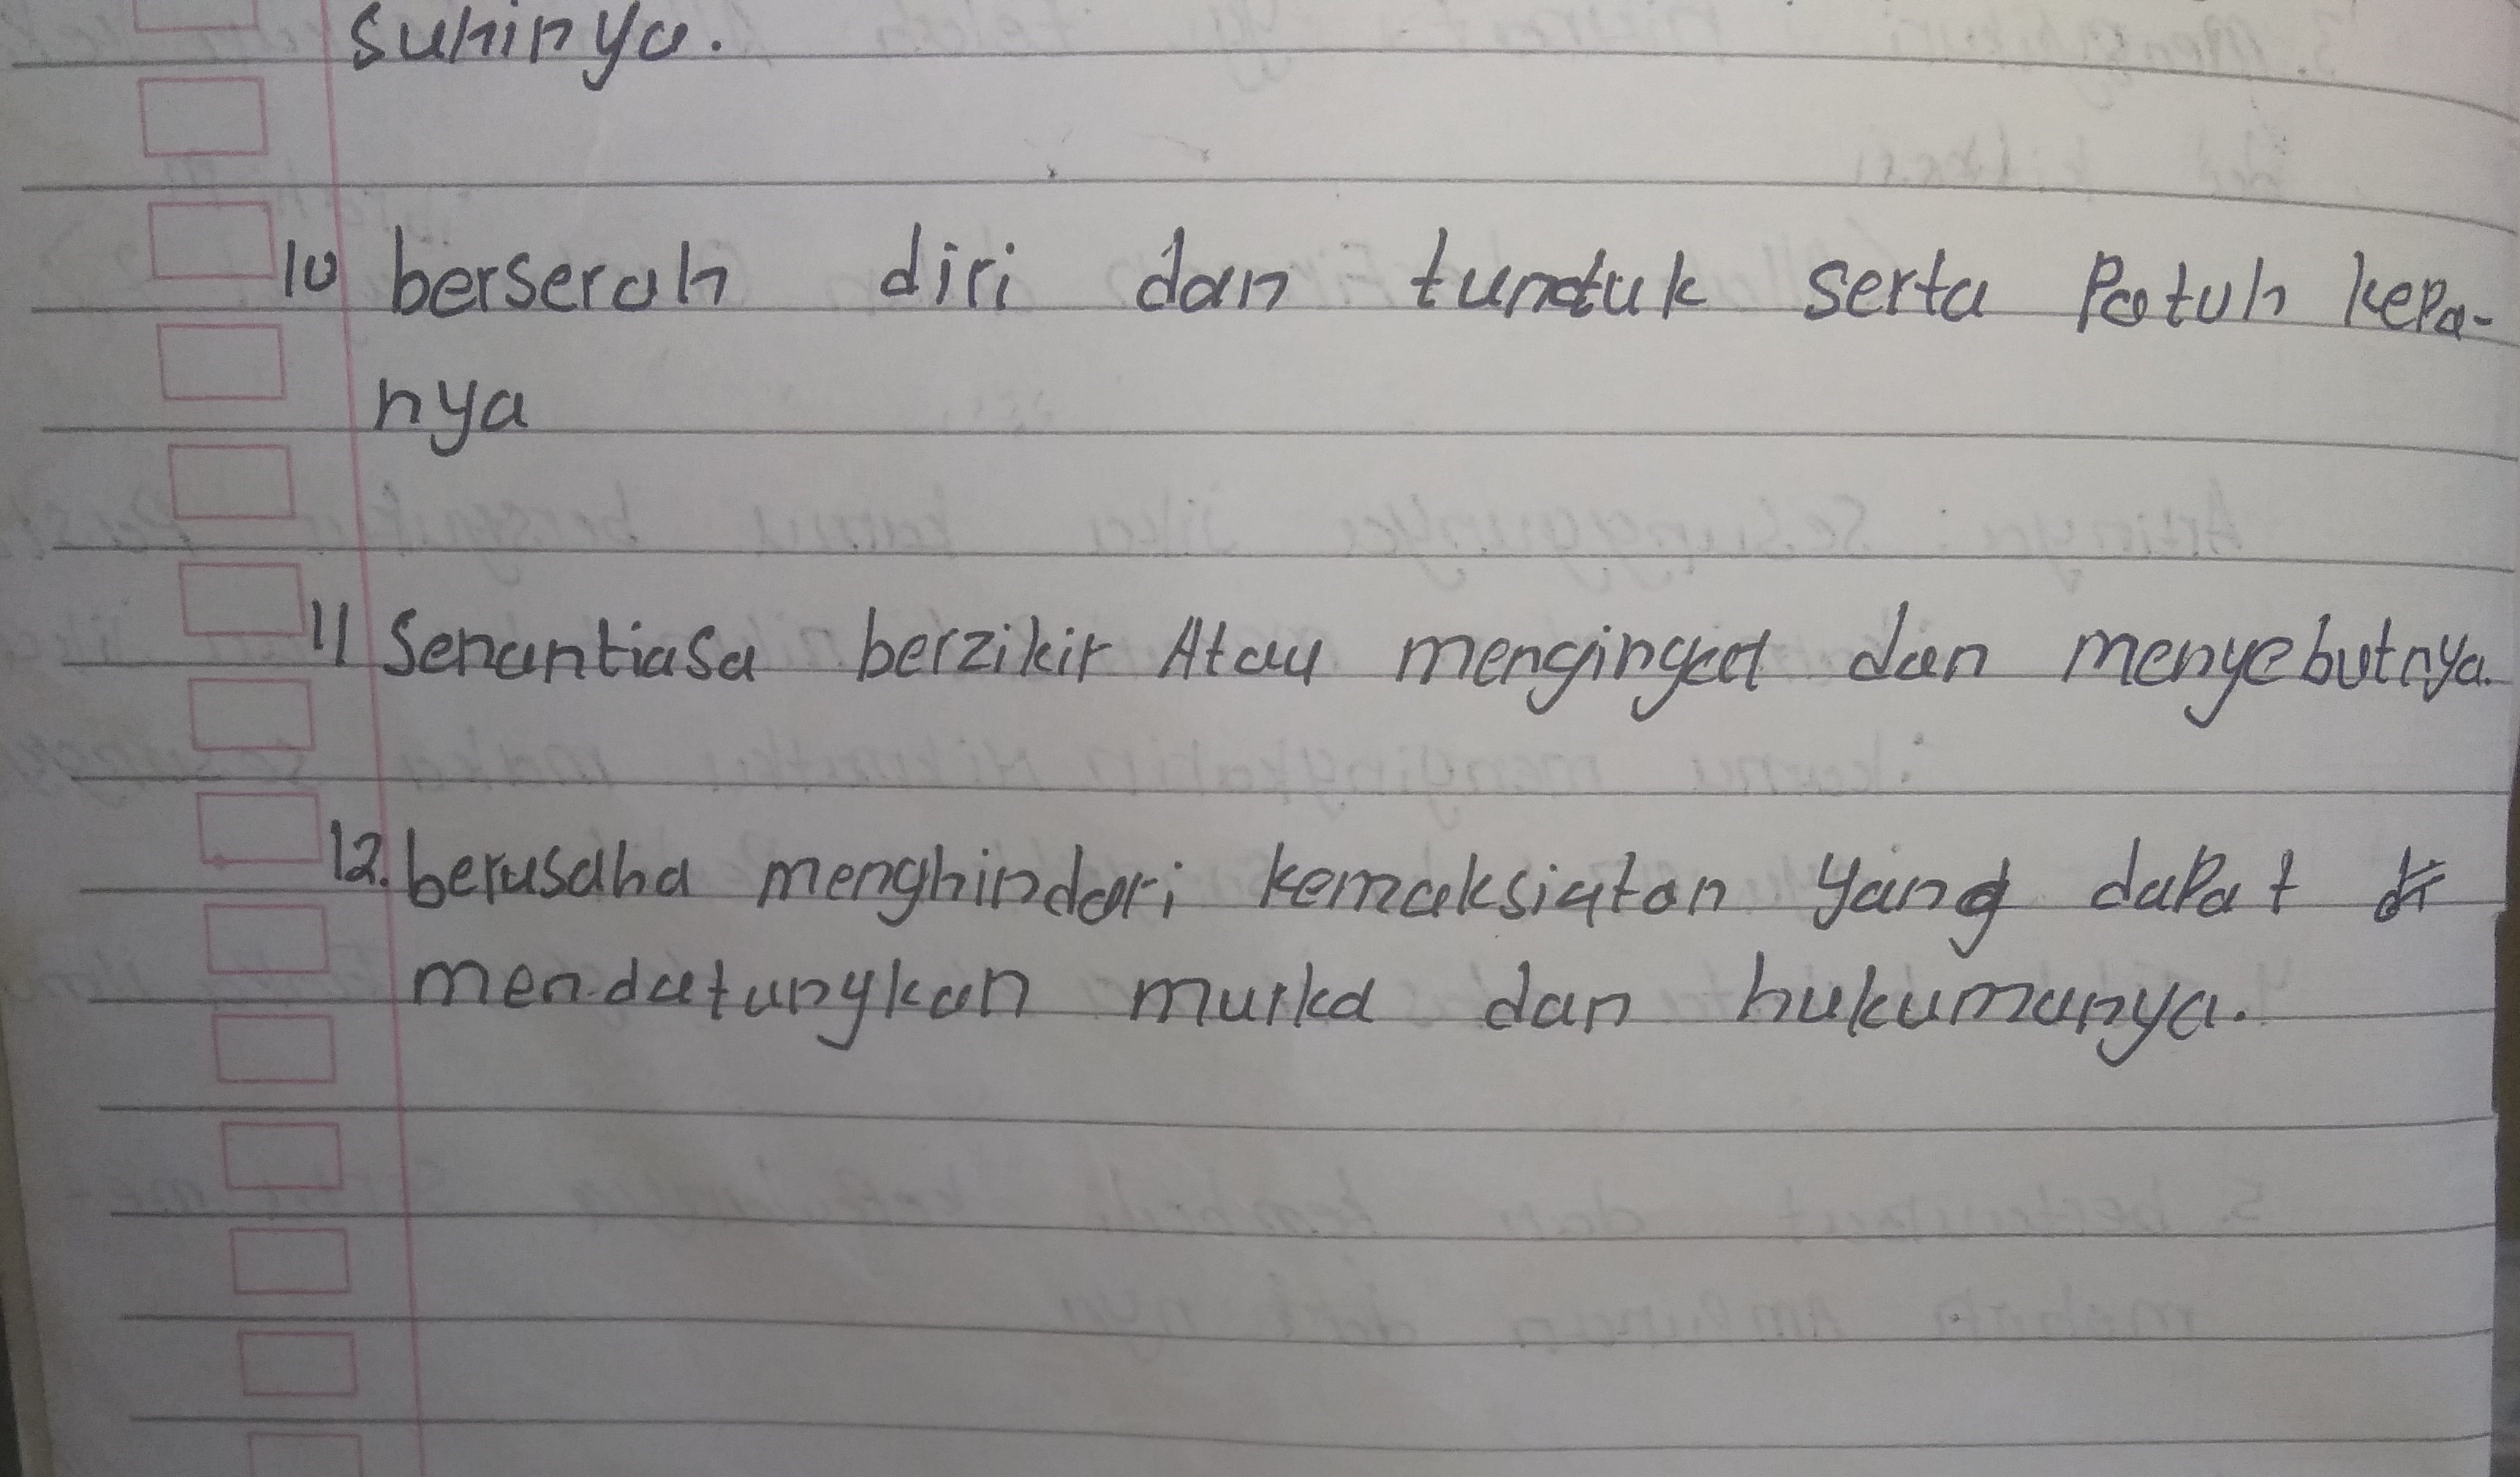 suhinya.
10 berserah diri dan tunduk serta Patuh kepa-
nya
11 Senantiasa berzikir Atau mengingat dan menyebutnya.
12. berusaha menghindari kemaksiatan yang dapat
mendatangkan murka dan hukumanya.